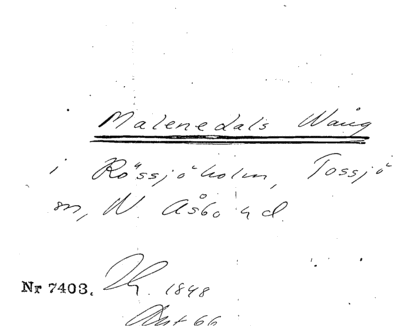 Malenedals Wång
i Rössjöholm, Tossjö
sn, N. Åsbo hd.
Nr 7403. 1848